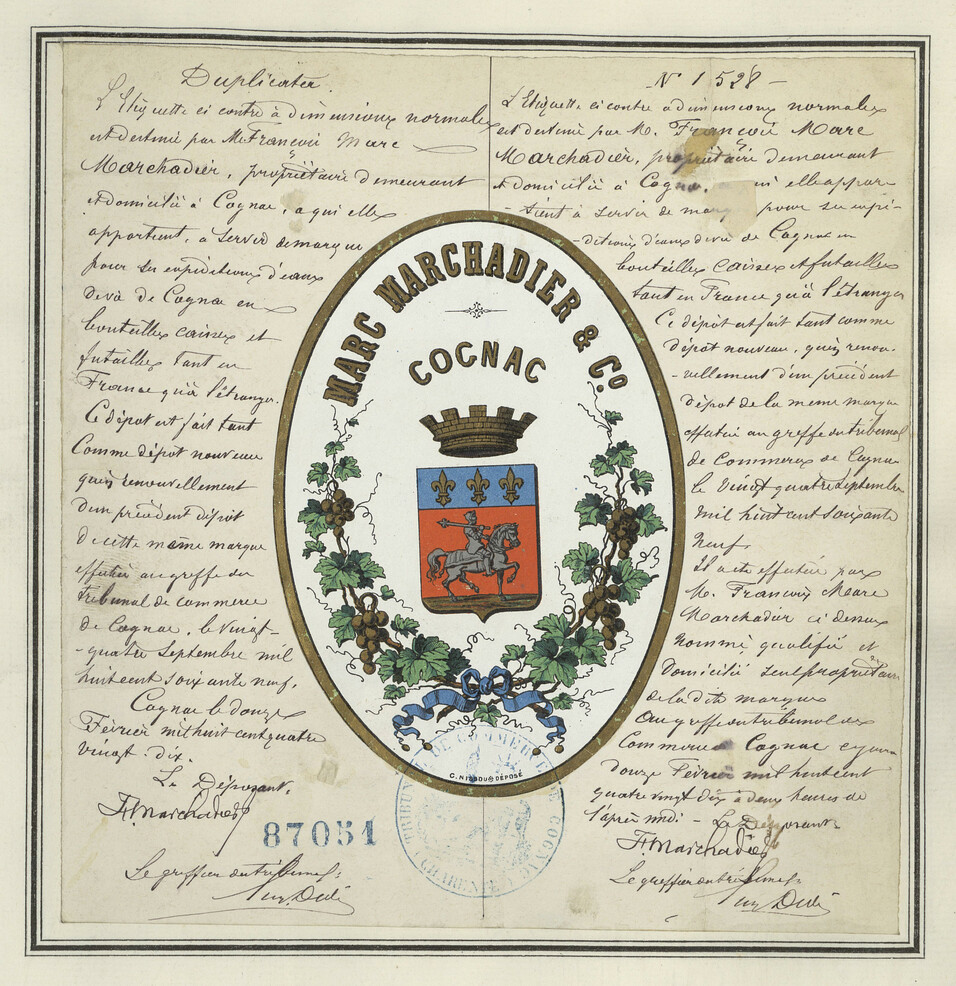 Duplicata.
L'Etiquette ci contre à dimensions normales
est destiné par M. François Marc
Marchadier, propriétaire demeurant
et domicilié à Cognac, a qui elle
appartient, a servir de marque
pour ses expéditions d'eaux
de vie de Cognac en
bouteilles caisses et
futailles tant en
France qu'à l'étranger.
Ce dépôt est fait tant
comme dépôt nouveau
qu'en renouvellement
d'un précédent dépôt
de cette même marque
effectué au greffe du
tribunal de commerce
de Cognac, le vingt-
-quatre Septembre mil
huit cent soixante neuf.
Cognac le douze
Février mil huit cent quatre
vingt dix.
Le Déposant.
F. Marchadier
87051
Le greffier du tribunal:
N° 1528 -
L'Etiquette ci contre à dimensions normales
est destiné par M. François Marc
Marchadier, propriétaire demeurant
et domicilié à Cognac, qui elle appar-
-tient à servir de marque pour ses expé-
-ditions d'eaux de vie de Cognac en
bouteilles caisses et futailles
tant en France qu'à l'étranger
Ce dépôt est fait tant comme
dépôt nouveau, qu'en renou-
-vellement d'un précédent
dépôt de la même marque
effectué au greffe du tribunal
de Commerce de Cognac
le vingt quatre Septembre
mil huit cent soixante
neuf.
Il a été effectué par
M. François Marc
Marchadier ci dessus
nommé qualifié et
domicilié seul propriétaire
de la dite marque
Au greffe du tribunal de
Commerce Cognac ce jour
douze Février mil huit cent
quatre vingt dix à deux heures de
l'après midi - Le Déposant:
F. Marchadier
Le greffier du tribunal:
MARC MARCHADIER & CO
COGNAC
C. NISSOU DÉPOSÉ
TRIBUNAL DE COMMERCE DE COGNAC
(CHARENTE)